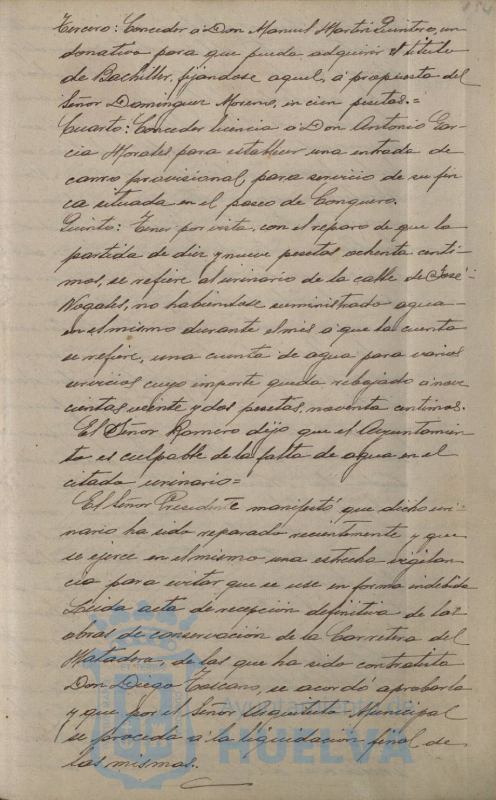 Tercero: Conceder a Don Manuel Martín Quintero, un
donativo para que pueda adquirir el título
de Bachiller, fijándose aquel, a propuesta del
Señor Dominguez Moreno, en cien pesetas.=
Cuarto: Conceder licencia a Don Antonio Gar-
cia Morales para establecer una entrada de
carros provisional, para servicio de su fin-
ca situada en el paseo de Conquero.
Quinto: Tener por vista, con el reparo de que la
partida de diez y nueve pesetas ochenta centi-
mos, se refiere al urinario de la calle de José
Nogales, no habiéndose suministrado agua
en el mismo durante el mes a que la cuenta
se refiere, una cuenta de agua para varios
servicios cuyo importe queda rebajado a nove-
cientas veinte y dos pesetas, noventa centimos.
El Señor Romero dijo que el Ayuntamien-
to es culpable de la falta de agua en el
citado urinario=
El Señor Presidente manifestó que dicho uri-
nario ha sido reparado recientemente y que
se ejerce en el mismo una estrecha vigilan-
cia para evitar que se use en forma indebida
Leida acta de recepción definitiva de las
obras de conservación de la Carretera del
Matadero, de las que ha sido contratista
Don Diego Toscano, se acordó aprobarla
y que por el Señor Arquitecto Municipal
se proceda a la liquidación final de
las mismas.
Ayuntamiento de
HUELVA